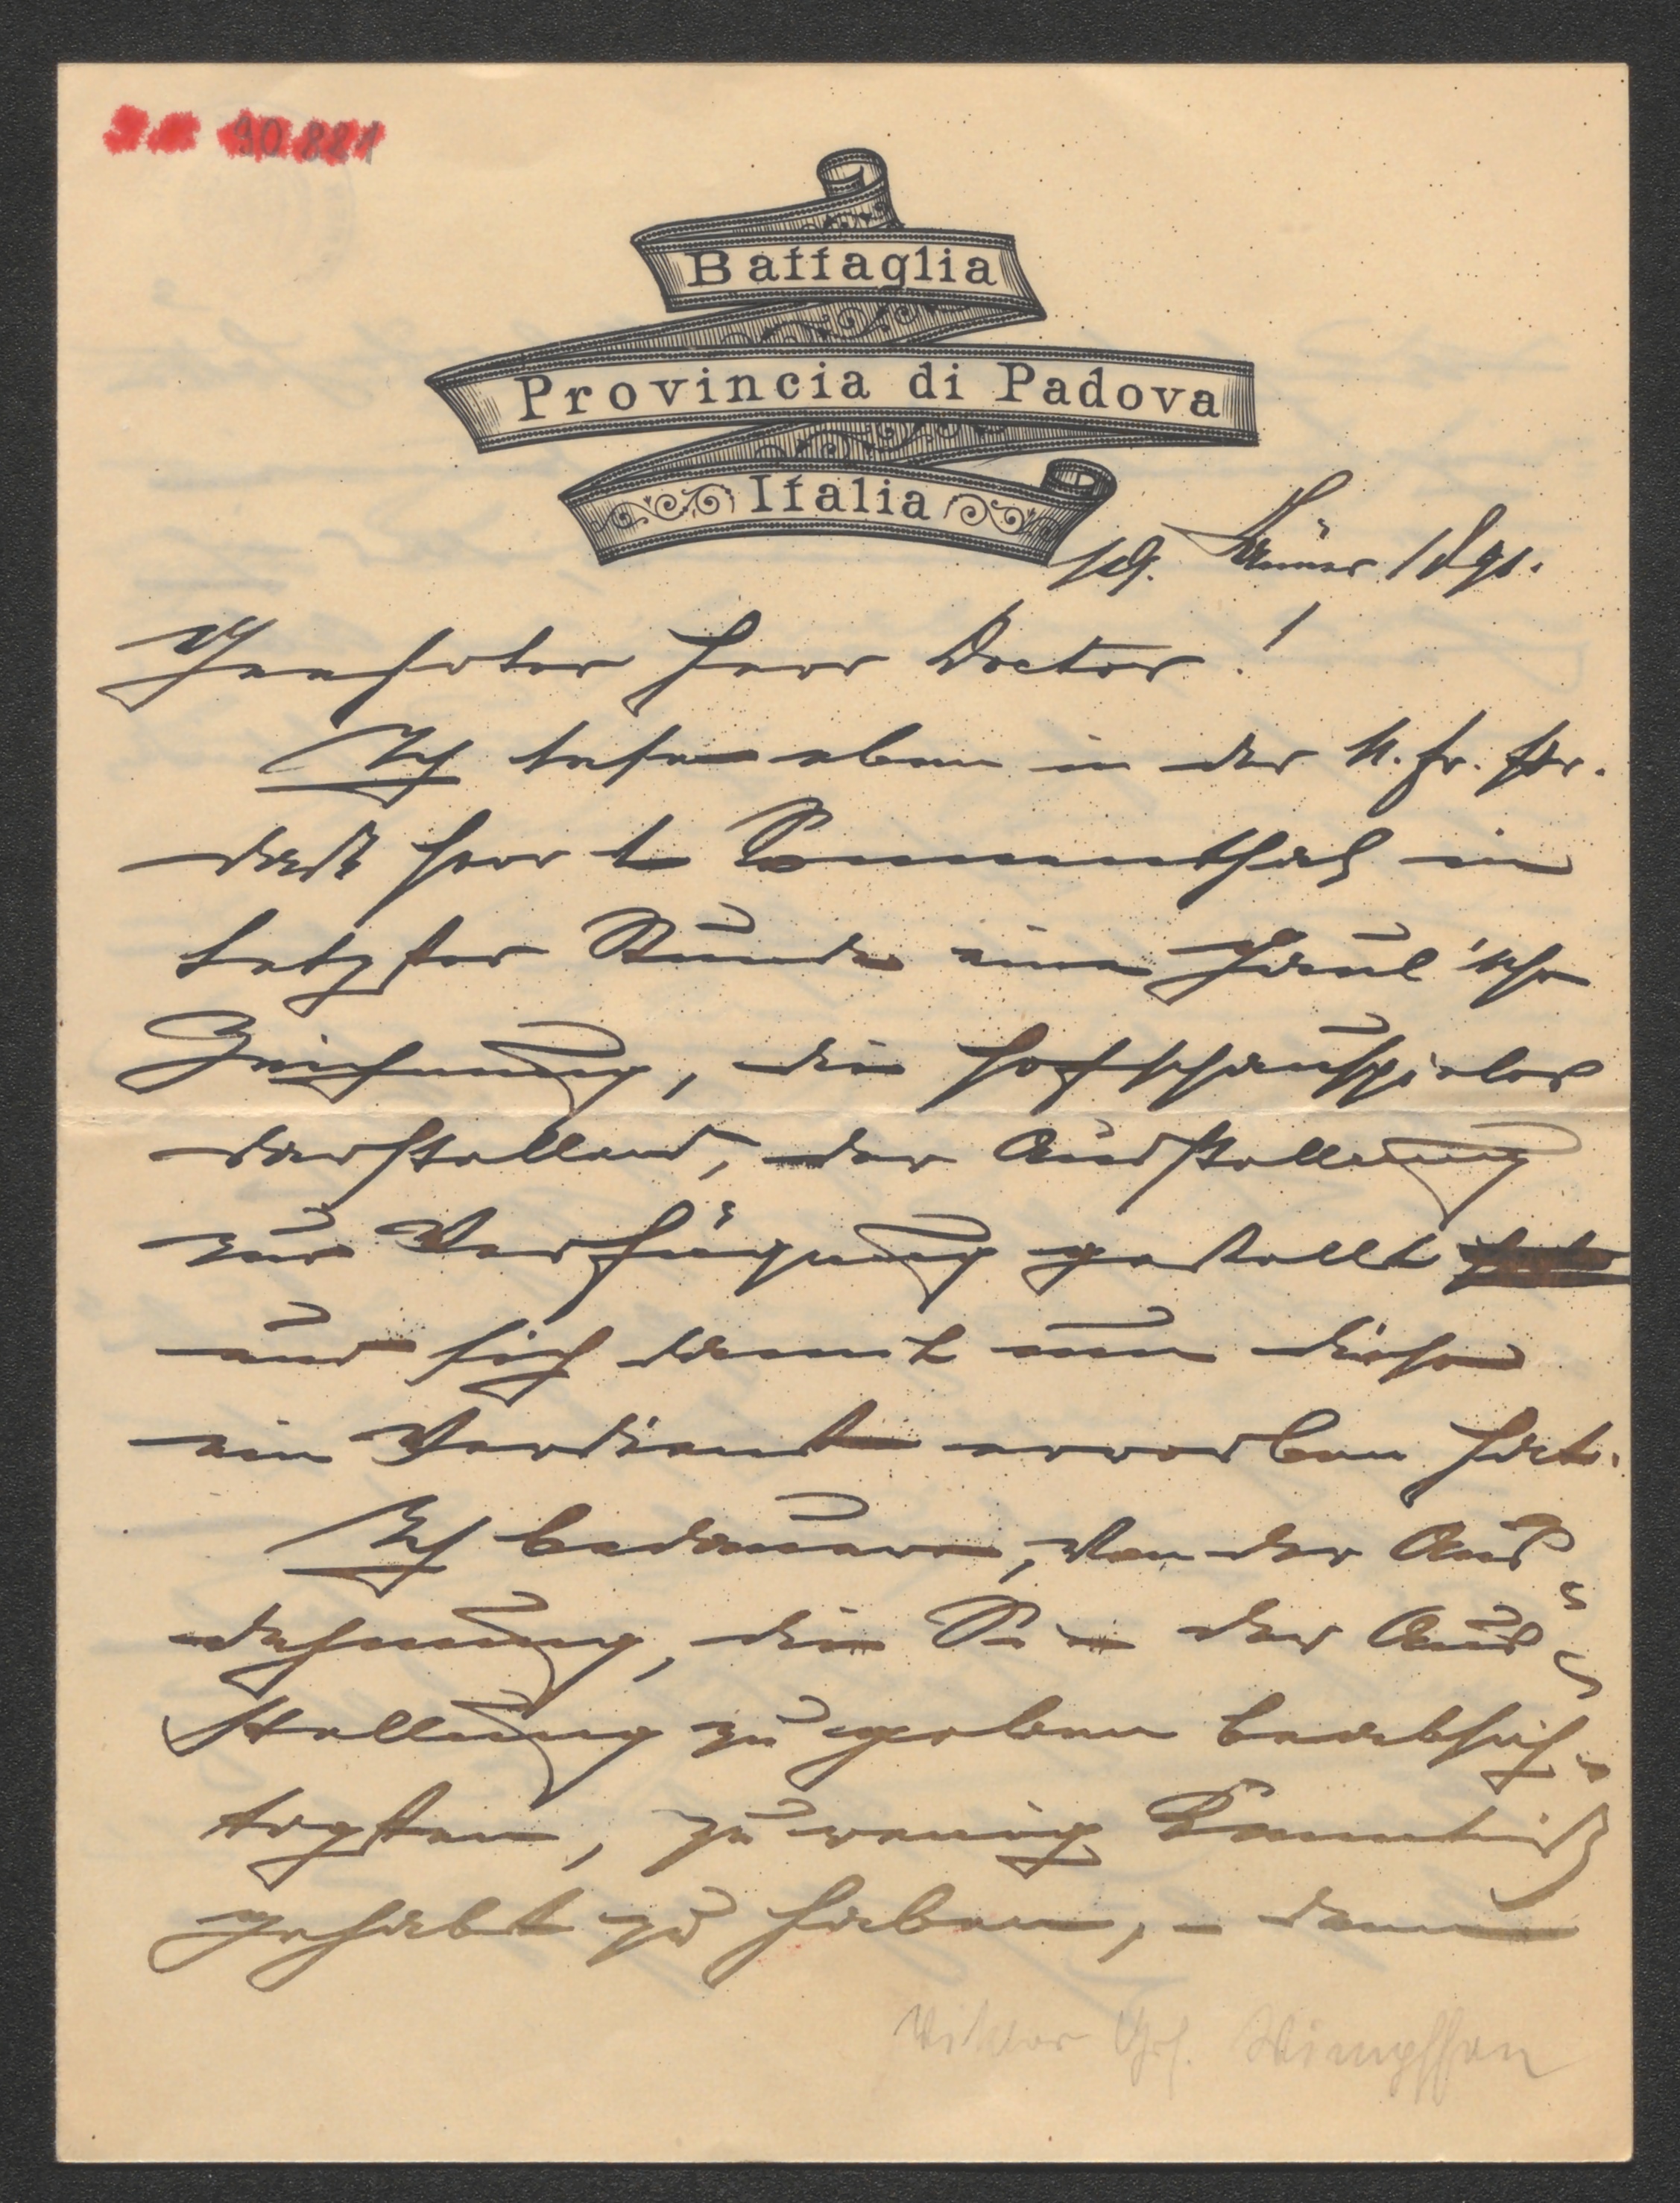 90881
Battaglia
Provincia di Padova
Italia
19. Jänner 1891.
Geehrter Herr Doctor!
Ich lese eben in der N. fr. Pr.
daß Herr Sonnenthal in
letzter Stunde eine Gaul'sche
Zeichnung, die Hofschauspieler
darstellend, der Ausstellung
zur Verfügung gestellt
und sich damit um diese
ein Verdienst erworben hat.
Ich bedauere, von der Aus-
dehnung, die Sie der Aus-
stellung zu geben beabsich-
tigten, zu wenig Kenntniß
gehabt zu haben, - denn
Viktor Grf. Wimpffen